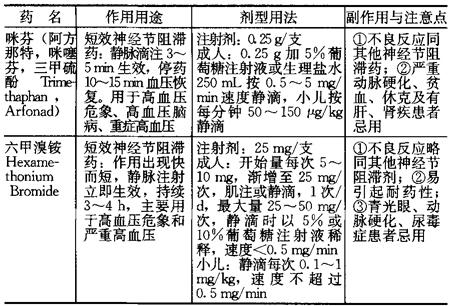 药 名
作用用途
剂型用法
副作用与注意点
咪芬（阿方
那特，咪噻
芬，三甲硫
酚 Trime-
thaphan，
Arfonad）
短效神经节阻滞
药：静脉滴注3～
5 min生效，停药
10～15 min血压恢
复。用于高血压
危象、高血压脑
病、重症高血压
注射剂：0.25 g/支
成人：0.25 g加5%葡
萄糖注射液或生理盐水
250 mL按0.5～5 mg/
min速度静滴，小儿按
每分钟50～150 μg/kg
静滴
①不良反应同
其他神经节阻
滞药；②严重
动脉硬化、贫
血、休克及有
肝、肾疾患者
忌用
六甲溴铵
Hexame-
thonium
Bromide
短效神经节阻滞
药：作用出现快
而短，静脉注射
立即生效，持续
3～4 h，主要用
于高血压危象和
严重高血压
注射剂：25 mg/支
成人：开始量每次5～
10 mg，渐增至25 mg/
次，肌注或静滴，1次/
d，最大量25～50 mg/
次，静滴时以5%或
10%葡萄糖注射液稀
释，速度<0.5 mg/min
小儿：静滴每次0.1～1
mg/kg，速度不超过
0.5 mg/min
①不良反应略
同其他神经节
阻滞剂；②易
引起耐药性；
③青光眼、动
脉硬化、尿毒
症患者忌用